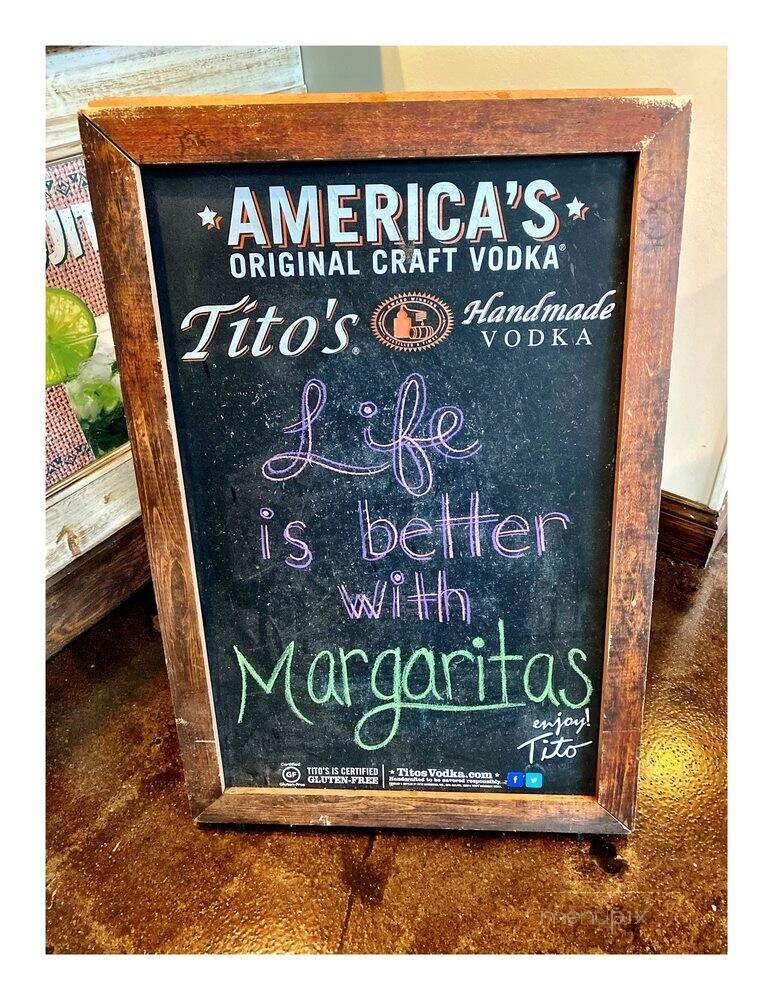 AMERICA'S
ORIGINAL CRAFT VODKA®
Tito's® Handmade
VODKA
Life
is better
with
Margaritas
enjoy!
Tito
Certified
GF
Gluten-Free
TITO'S IS CERTIFIED
GLUTEN-FREE
TitosVodka.com
Handcrafted to be savored responsibly.
menupix